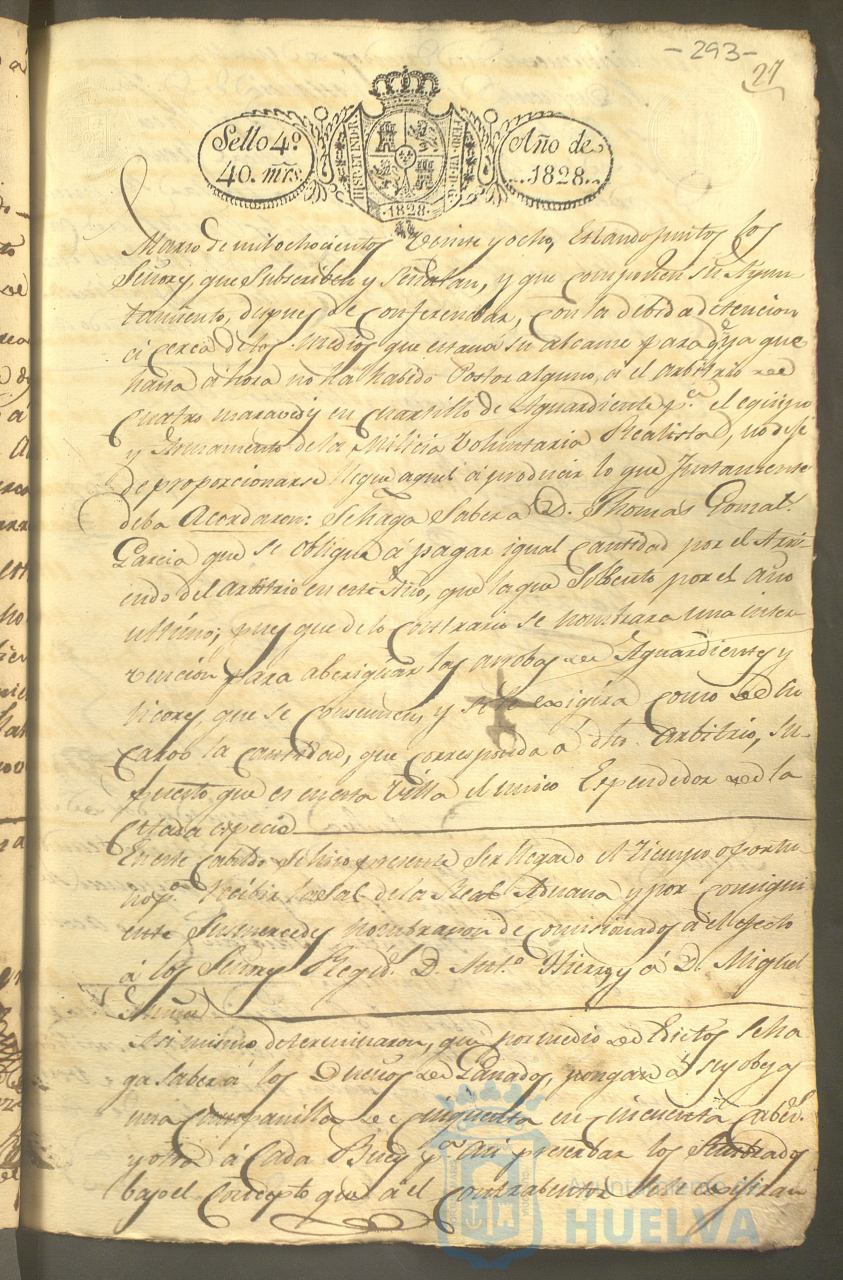 -293-
27
Sello 4º
40. mrs.
HISP. ET IND. R.
1828
Año de
1828.
Marzo de mil ochocientos veinte y ocho, Estando juntos los
Señores, que Subscriben y Señalan, y que componen su Ayun-
tamiento, despues de conferenciar, con la debida detencion
a cerca de los medios que estan a su alcance para q.e ya que
hasta ahora no ha habido Postor alguno, a el Arbitrio de
cuatro maravedis en cuartillo de Aguardiente p.a el equipo
y Armamento de la Milicia Voluntaria Realista, no deje
de proporcionarse llegue aquel a producir lo que Justamente
deba Acordaron: Se haga Saber a D. Thomas Gonzal.s
Garcia que se obligue á pagar igual cantidad por el Arri-
endo del Arbitrio en este Año, que la que Satisfizo por el año
ultimo; pues que de lo contrario se nombrara una inter
vencion para aberiguar las arrobas de Aguardientes y
licores, que se consumen, y se le exigira como de Su
cargo la cantidad, que corresponda á dho. Arbitrio, Su-
puesto que es en esta Villa el unico Espendedor de la
citada especie
En este Cabildo Se hizo presente Ser llegado el tiempo oportu
no p.a recibir la Sal de la Real Aduana y por consigui
ente Sus mercedes nombraron de comisionados a el efecto
á los Señores Regid.s D. Ant.o Hierro, y á D. Miguel
Asi mismo determinaron, que por medio de Edictos Se ha
ga Saber á los Dueños de Ganados, pongan á sus obejas
una Campanilla de cinquenta en cincuenta cabez.s
y otra á Cada Buey p.a asi preserbar los Sembrados
bajo el Concepto que á el Contrabentor Se le exijiran
Ayuntamiento de
HUELVA